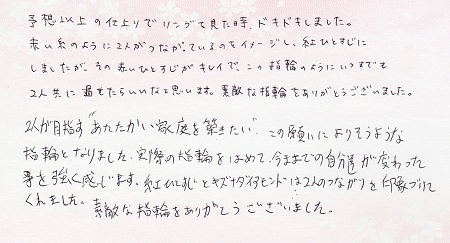 予想以上の仕上りでリングを見た時、ドキドキしました。
赤い糸のように2人がつながっているのをイメージし、紅ひとすじに
しましたが、その赤いひとすじがキレイで、この指輪のようにいつまでも
2人共に過せたらいいなと思います。素敵な指輪をありがとうございました。
2人が目指す"あたたかい家庭を築きたい"この願いによりそうような
指輪となりました。実際の指輪をはめて、今までの自分達が変わった
事を強く感じます。紅ひとすじとキズナダイヤモンドは2人のつながりを印象づけて
くれました。素敵な指輪をありがとうございました。